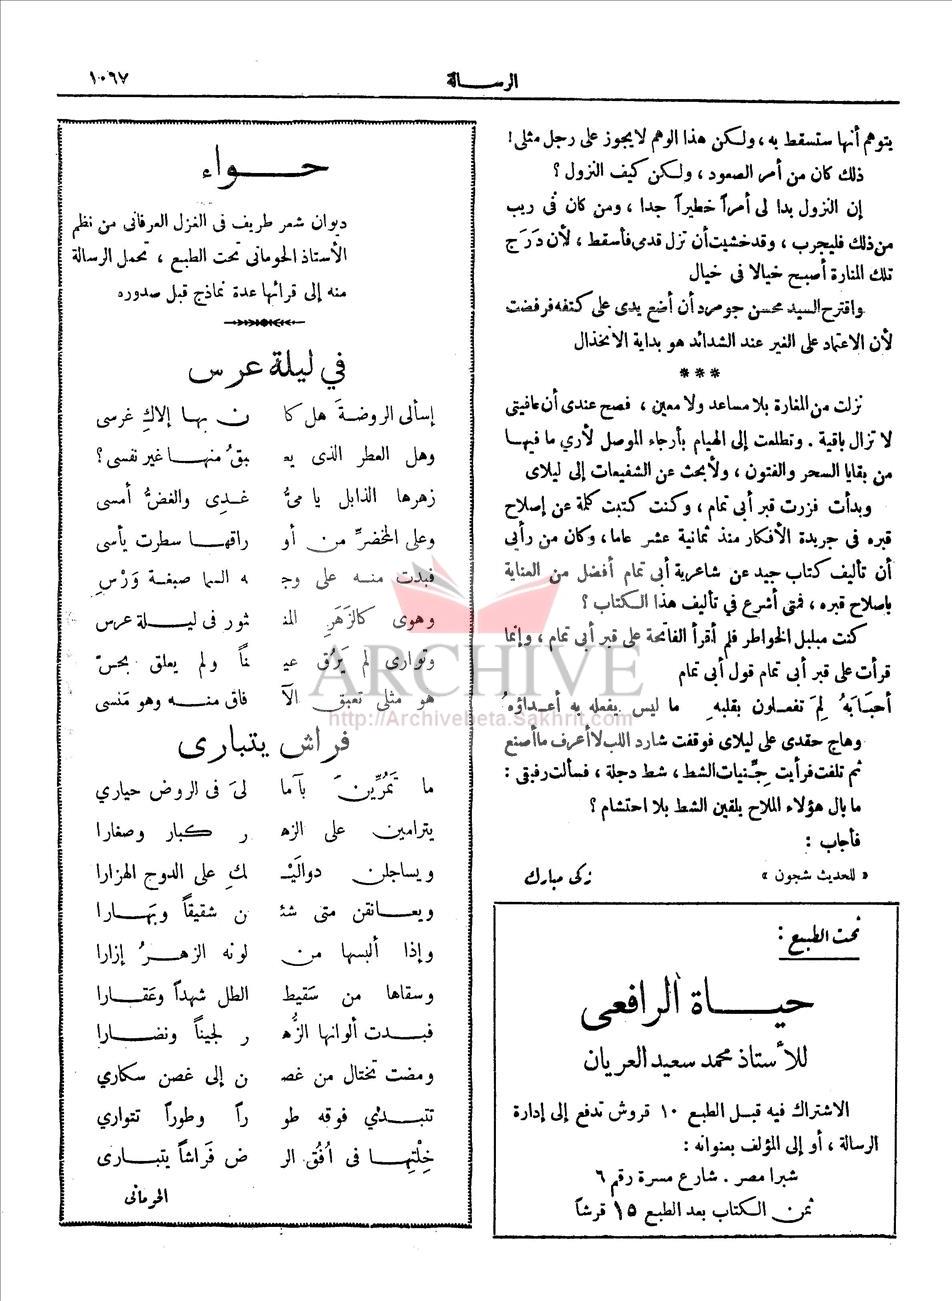 الرسالة
١٠٦٧
يتوهم أنها ستسقط به ، ولكن هذا الوهم لا يجوز على رجل مثلى !
ذلك كان من أمر الصعود ، ولكن كيف النزول ؟
إن النزول بدا لى أمراً خطيراً جدا ، ومن كان فى ريب
من ذلك فليجرب ، وقد خشيت أن تزل قدمى فأسقط ، لأن دَرَج
تلك المنارة أصبح خيالا فى خيال
واقترح السيد محسن جومرد أن أضع يدى على كتفه فرفضت
لأن الاعتماد على الغير عند الشدائد هو بداية الانخذال
***
نزلت من المنارة بلا مساعد ولا معين ، فصح عندى أن عافيتى
لا تزال باقية . وتطلعت إلى الهيام بأرجاء الموصل لأرى ما فيها
من بقايا السحر والفتون ، ولأبحث عن الشفيعات إلى ليلاى
وبدأت فزرت قبر أبى تمام ، وكنت كتبت كلمة عن إصلاح
قبره فى جريدة الأفكار منذ ثمانية عشر عاما ، وكان من رأيى
أن تأليف كتاب جيد عن شاعرية أبى تمام أفضل من العناية
بإصلاح قبره ، فمتى أشرع في تأليف هذا الكتاب ؟
كنت مبلبل الخواطر فلم أقرأ الفاتحة على قبر أبى تمام ، وإنما
قرأت على قبر أبى تمام قول أبى تمام
أحبَابَهُ لِمَ تفعلون بقلبهِ ما ليس يفعله به أعداؤهُ
وهاج حقدى على ليلاى فوقفت شارد اللب لا أعرف ما أصنع
ثم تلفت فرأيت جِنِّيات الشط ، شط دجلة ، فسألت رفيقى :
ما بال هؤلاء الملاح يلقين الشط بلا احتشام ؟
فأجاب :
« للحديث شجون » زكى مبارك
تحت الطبع :
حياة الرافعى
للأستاذ محمد سعيد العريان
الاشتراك فيه قبل الطبع ١٠ قروش تدفع إلى إدارة
الرسالة ، أو إلى المؤلف بعنوانه :
شبرا مصر . شارع مسرة رقم ٦
ثمن الكتاب بعد الطبع ١٥ قرشاً
حواء
ديوان شعر طريف فى الغزل العرفانى من نظم
الأستاذ الحومانى تحت الطبع ، تحمل الرسالة
منه إلى قرائها عدة نماذج قبل صدوره
في ليلة عرس
إسألى الروضةَ هل كا ن بها إلاكِ غرسى
وهل العطر الذى يعـ بقُ منها غير نفسى ؟
زهرها الذابل يا مىُّ غدِى والغضُّ أمسى
وعلى المخضرِّ من أو راقها سطرت يأسى
فبدت منه على وجـ ه السما صبغة وَرْسِ
وهوى كالزَهَرِ المنـ ثور فى ليلة عرس
وتوارى لم يَرُق عيـ ناً ولم يعلق بحسّ
هو مثلى تعبق الآ فاق منه وهو مَنسى
فراش يتبارى
ما تَمُرِّينَ بآما لىَ فى الروض حيارى
يترامين على الزهـ ر كبار وصغارا
ويساجلن دواليْـ لكِ على الدوح الهزارا
ويعانقن متى شئـ ن شقيقاً وبَهارا
وإذا ألبسها من لونه الزهرُ إزارا
وسقاها من سَقيط الطل شهداً وعَقارا
فبدت ألوانها الزُّهـ ر لجيناً ونضارا
ومضت تختال من غصـ ن إلى غصن سكارى
تتبدى فوقه طو راً وطوراً تتوارى
خِلْتِها فى أفُق الر ض فَراشاً يتبارى
الحومانى
ARCHIVE
http://Archivebeta.Sakhrit.com